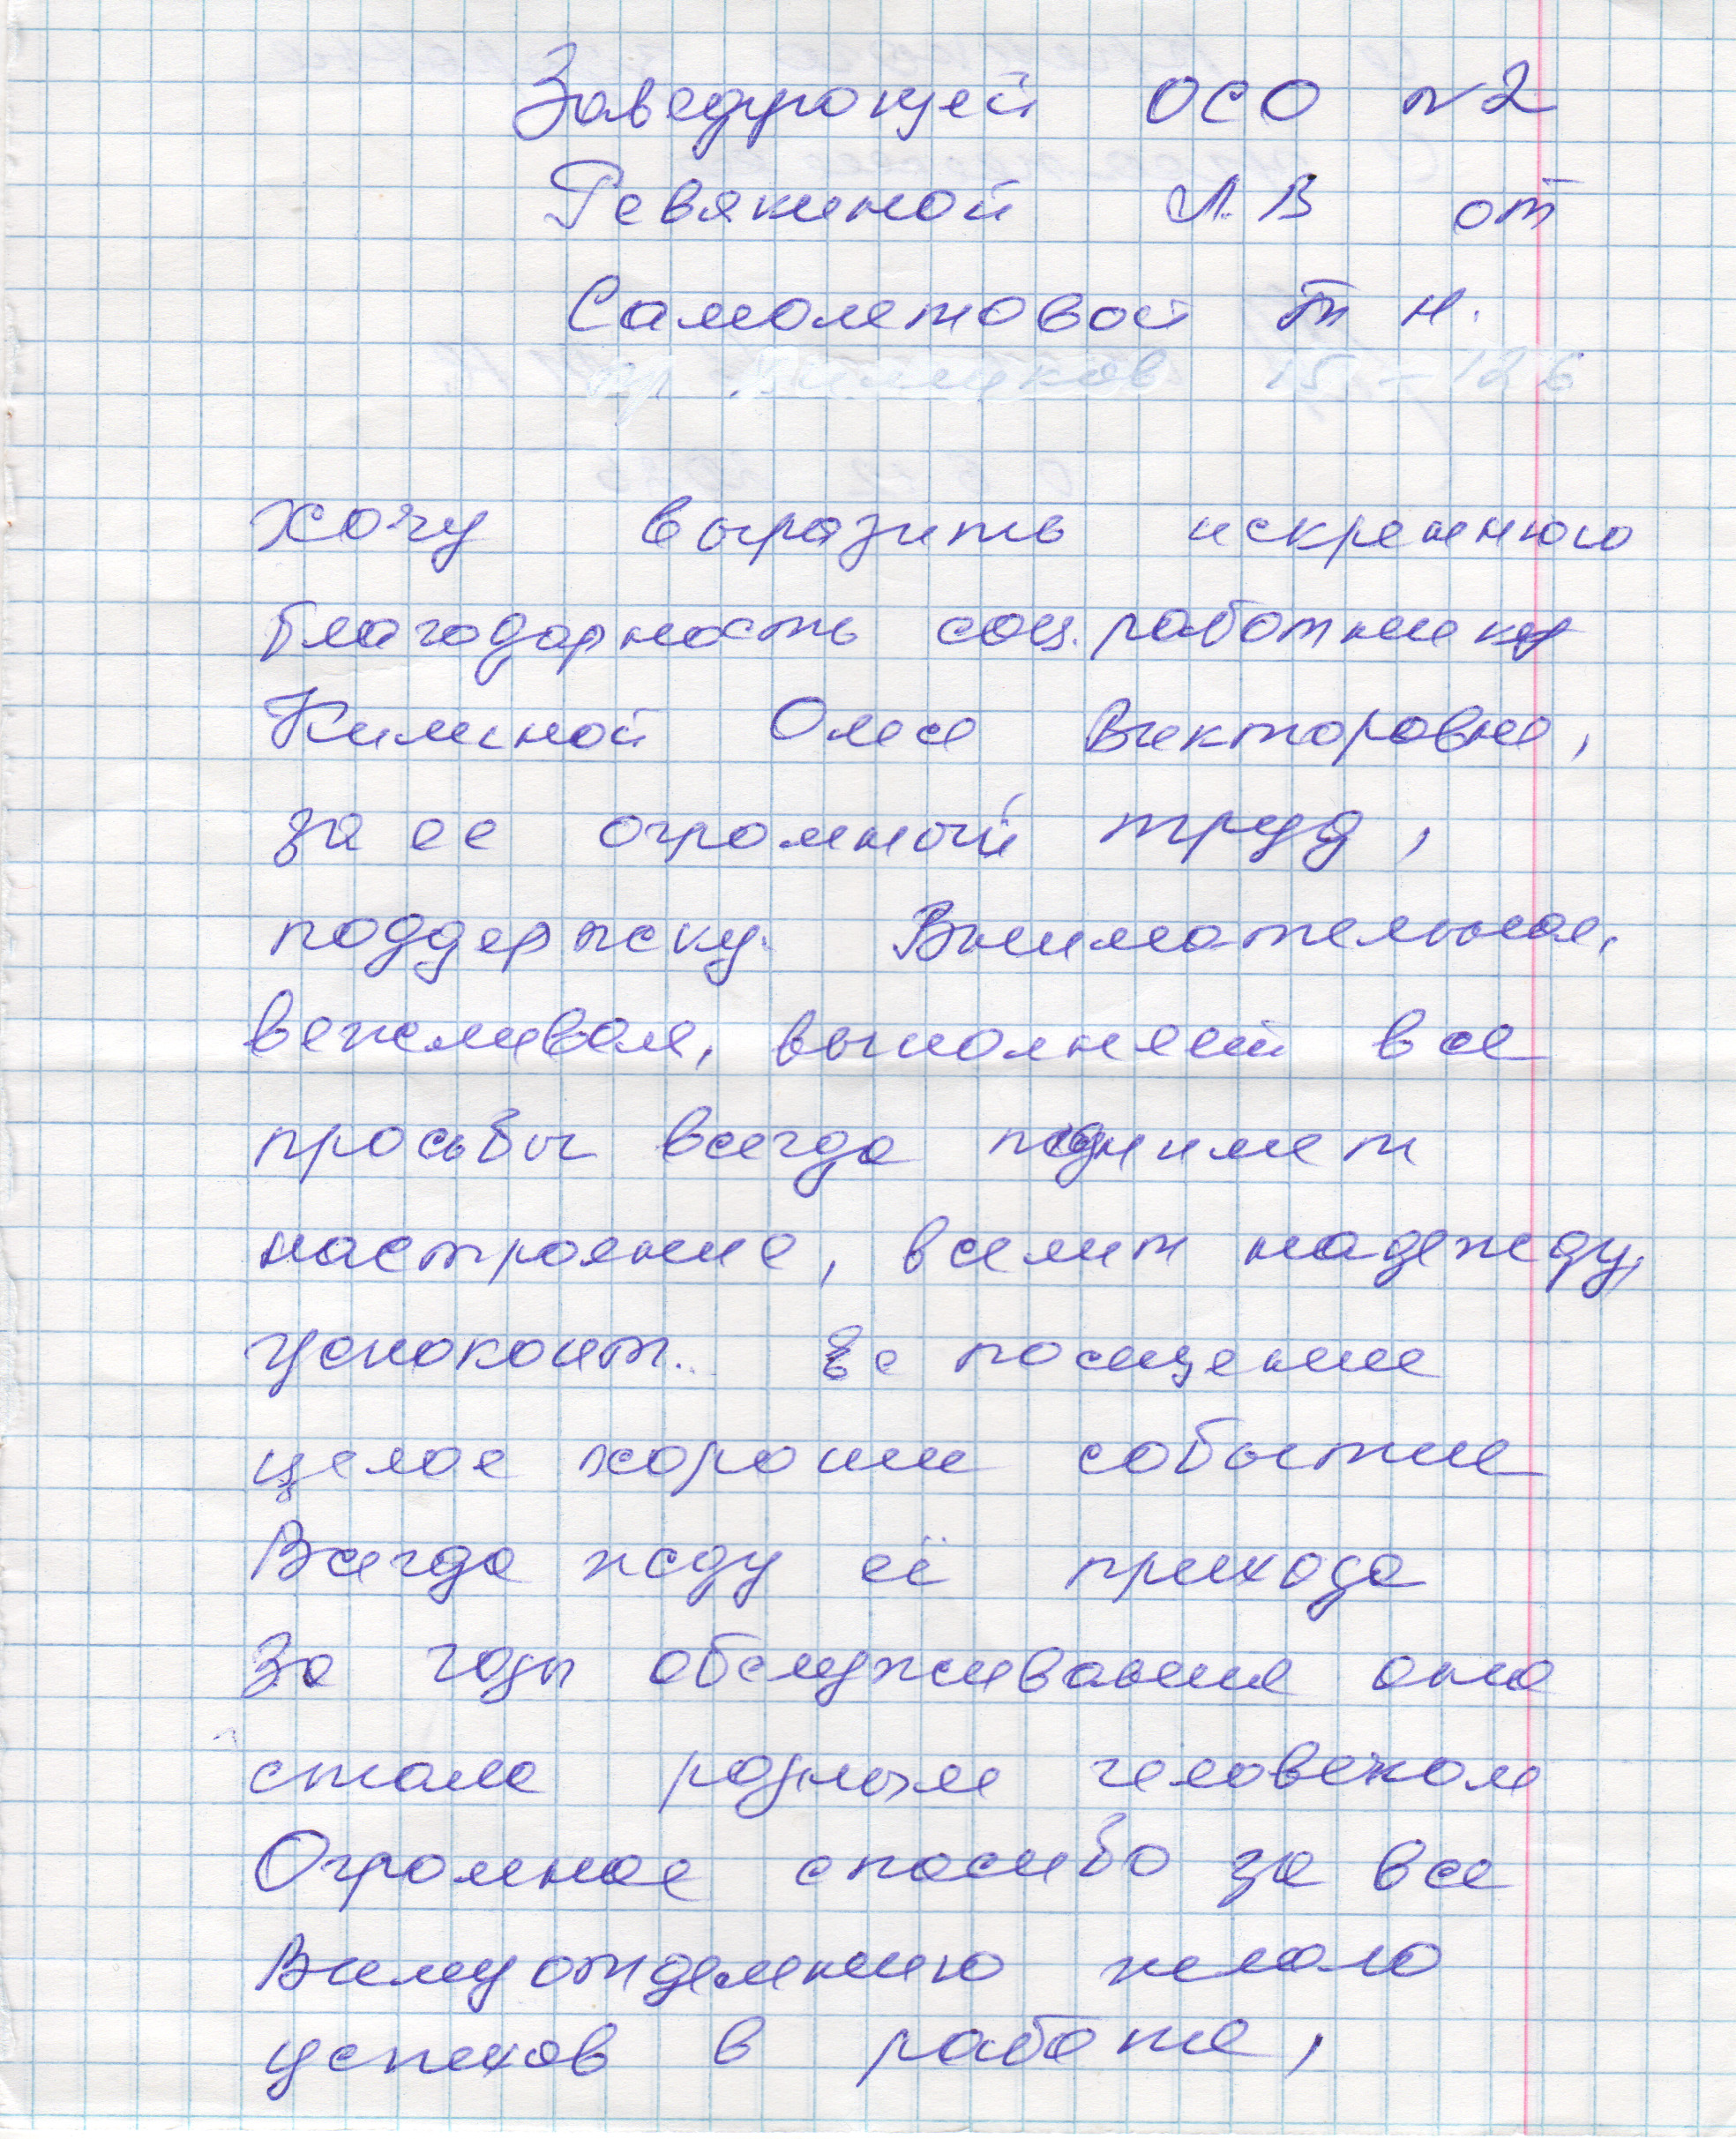 Заведующей ОСО №2
Ревякиной Л.В от
Самолетовой Т Н.
Хочу выразить искреннюю
благодарность соц.работнику
Киминой Олесе Викторовне,
за ее огромный труд,
поддержку. Внимательная,
вежливая, выполняет все
просьбы всегда поднимет
настроение, вселит надежду,
успокоит. Ее посещение
целое хорошее событие
Всегда жду её прихода
За годы обслуживания она
стала родным человеком
Огромное спасибо за все
Всему отделению желаю
успехов в работе,